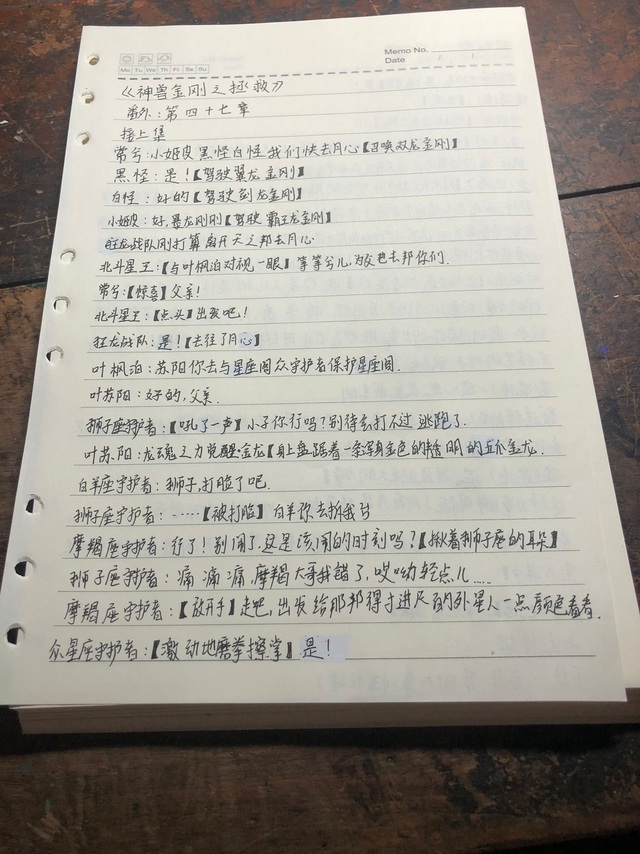 Memo No.
Date
Mo Tu We Th Fr Sa Su
《神兽金刚之拯救》
番外:第四十七章
接上集
常兮:小姬皮黑怪白怪我们快去月心【召唤双龙金刚】
黑怪:是!【驾驶翼龙金刚】
白怪:好的【驾驶剑龙金刚】
小姬皮:好,暴龙刚刚【驾驶霸王龙金刚】
狂龙战队刚打算离开天之邦去月心
北斗星王:【与叶枫泊对视一眼】等等兮儿,为父也去帮你们.
常兮:【惊喜】父亲!
北斗星王:【点头】出发吧!
狂龙战队:是!【去往了月心】
叶枫泊:苏阳你去与星座阁众守护者保护星座阁.
叶苏阳:好的,父亲.
狮子座守护者:【吼了一声】小子你行吗?别待会打不过逃跑了.
叶苏阳:龙魂之力觉醒·金龙【身上盘踞着一条浑身金色的透明的五爪金龙.
白羊座守护者:狮子,打脸了吧.
狮子座守护者:……【被打脸】白羊你去拆我台
摩羯座守护者:行了!别闹了.这是该闹的时刻吗?【揪着狮子座的耳朵】
狮子座守护者:痛痛痛,摩羯大哥我错了,哎呦轻点儿……
摩羯座守护者:【放开手】走吧,出发给那帮得寸进尺的外星人一点颜色看看.
众星座守护者:【激动地磨拳擦掌】是!